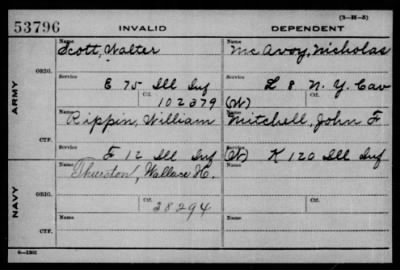 (3-21-5)
53796 INVALID DEPENDENT
Name Name
Scott, Walter Mc Avoy, Nicholas
ORIG.
Service Service
E 75 Ill Inf L 8 N. Y. Cav
ARMY
Ctf. Ctf.
102379 (W)
Name Name
Rippin, William Mitchell, John F
CTF.
Service Service
F 12 Ill Inf (W) K 120 Ill Inf
Name Name
Thurston, Wallace H.
NAVY
ORIG.
Ctf. Ctf.
28294
Name Name
CTF.